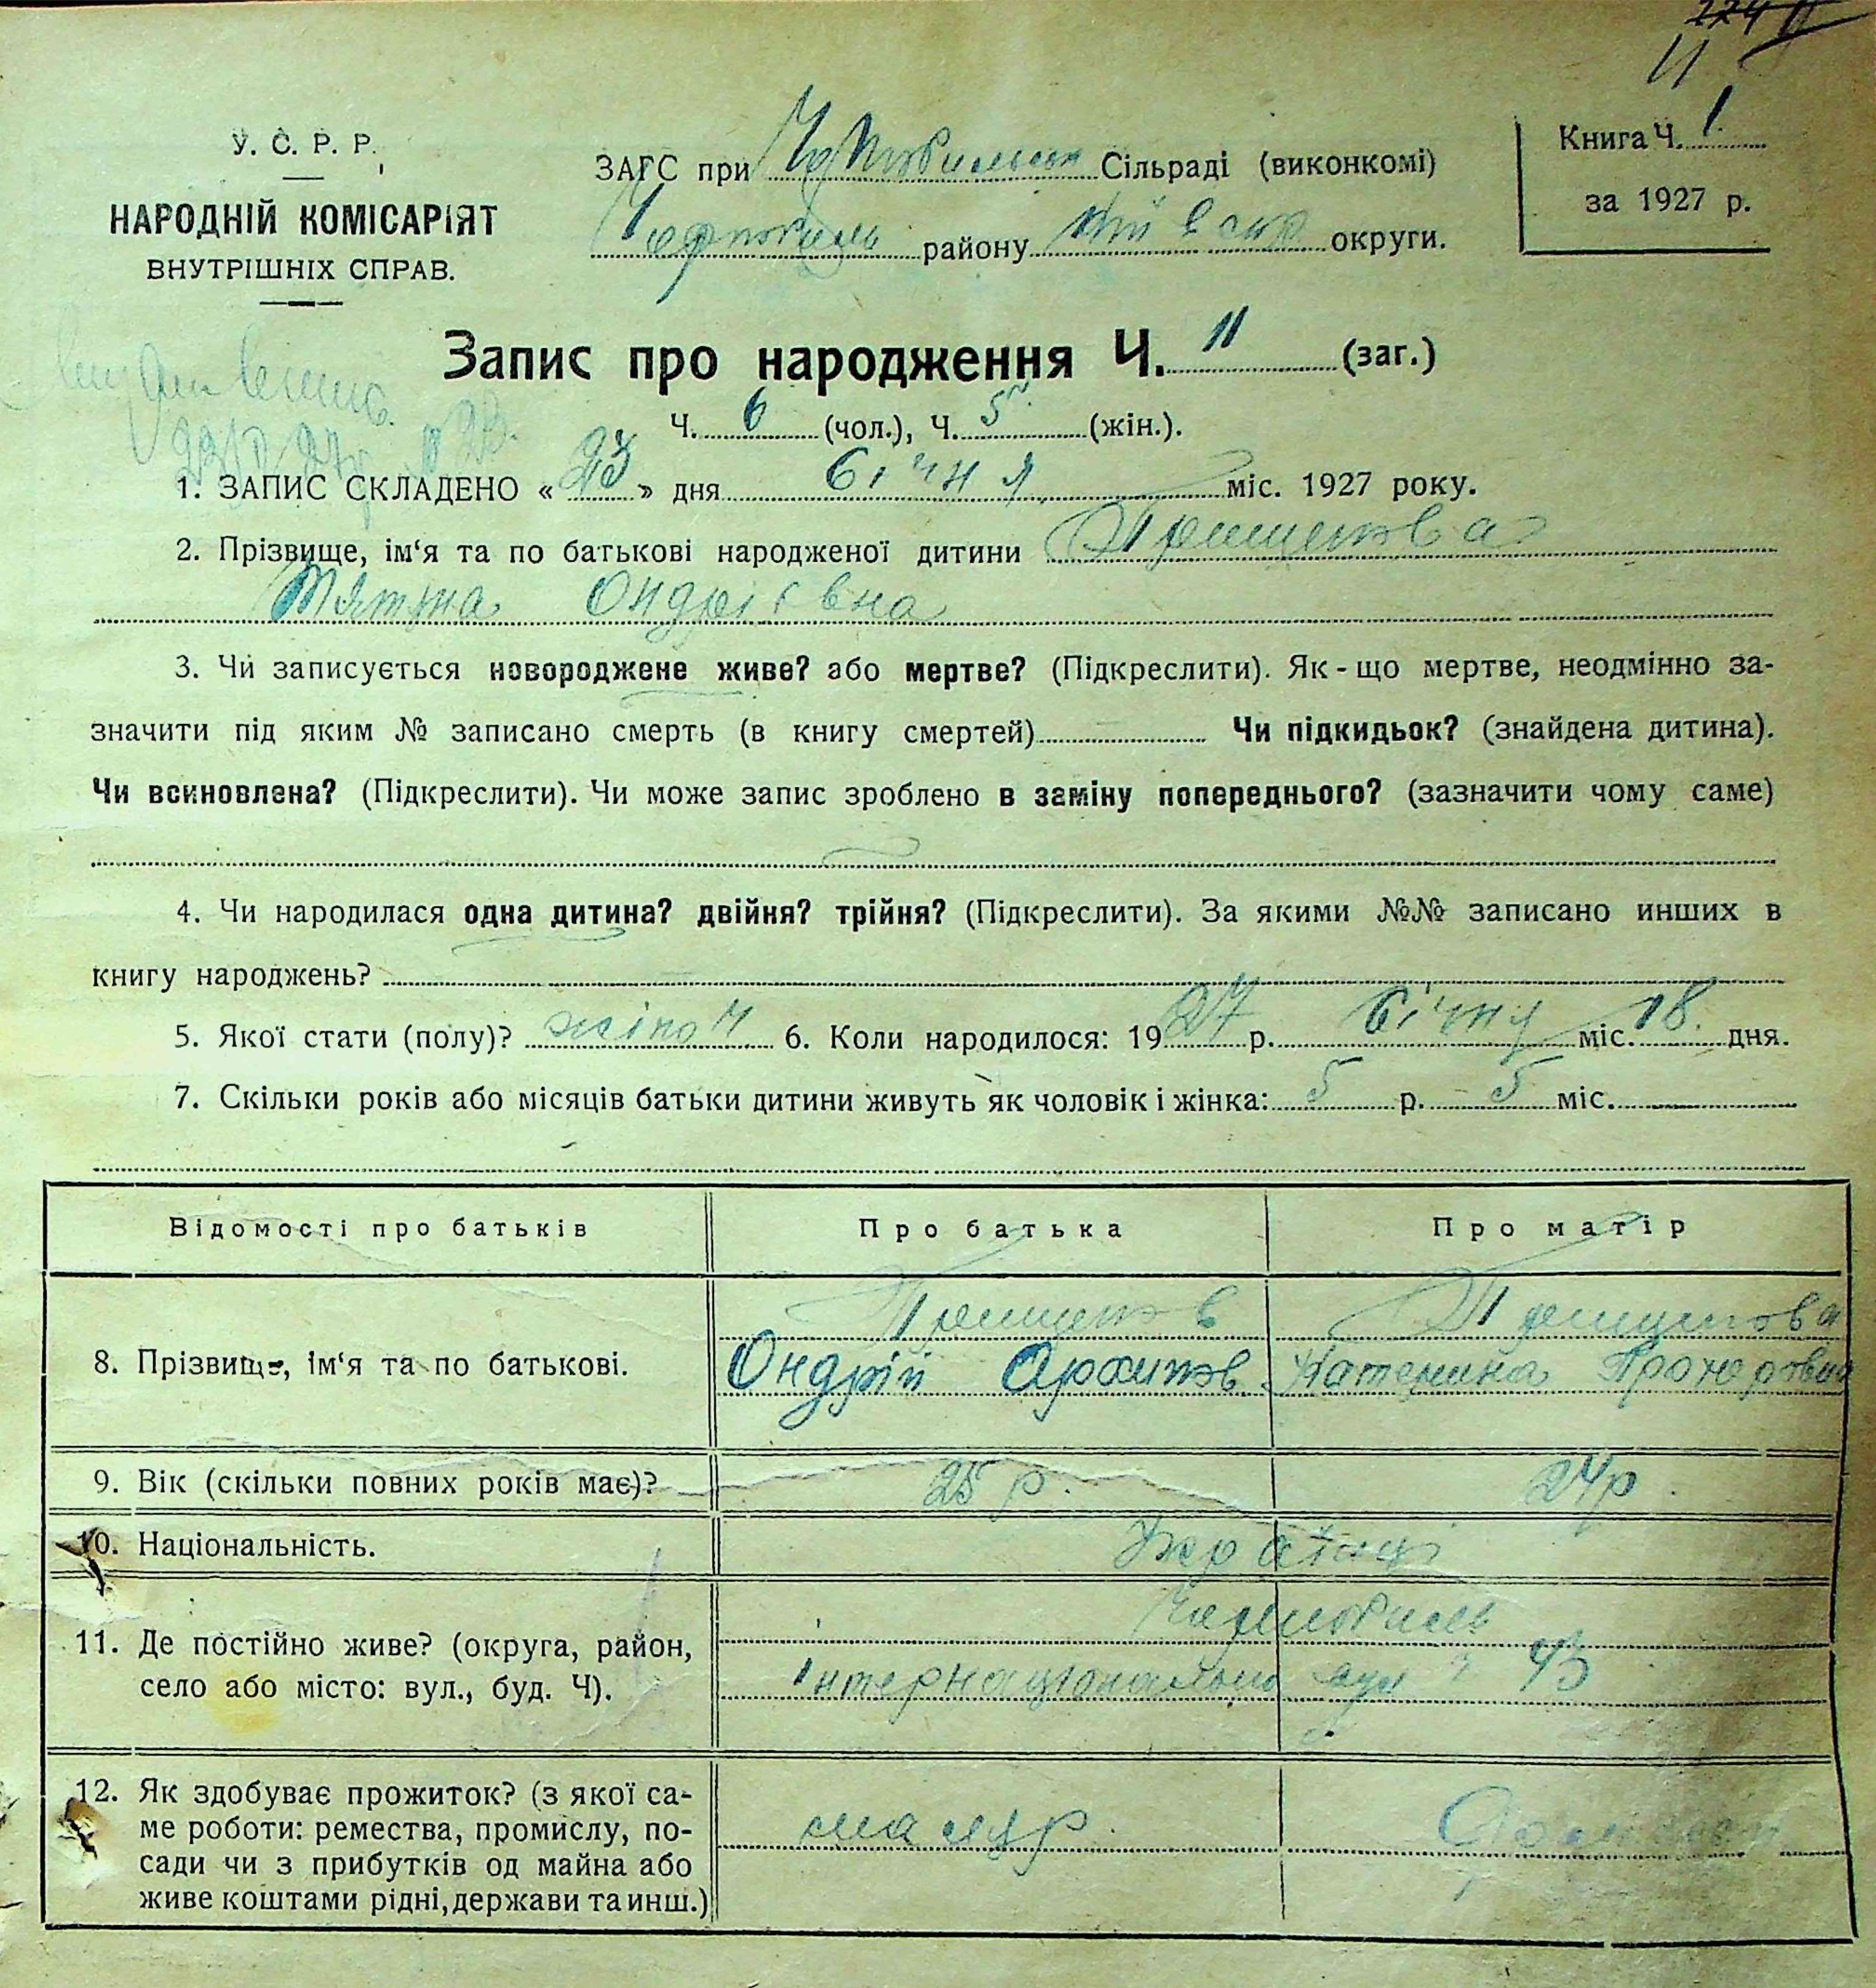 11
У. С. Р. Р.
НАРОДНІЙ КОМІСАРІЯТ
ВНУТРІШНІХ СПРАВ.
ЗАГС при Сільраді (виконкомі)
Чорнобиль району Київськ округи.
Книга Ч. 1
за 1927 р.
Запис про народження Ч. 11 (заг.)
Ч. 6 (чол.), Ч. 5 (жін.).
1. ЗАПИС СКЛАДЕНО « 23 » дня січня міс. 1927 року.
2. Прізвище, ім‘я та по батькові народженої дитини
Тятяна Ондріївна
3. Чи записується новороджене живе? або мертве? (Підкреслити). Як-що мертве, неодмінно за-
значити під яким № записано смерть (в книгу смертей) Чи підкидьок? (знайдена дитина).
Чи всиновлена? (Підкреслити). Чи може запис зроблено в заміну попереднього? (зазначити чому саме)
4. Чи народилася одна дитина? двійня? трійня? (Підкреслити). За якими №№ записано инших в
книгу народжень?
5. Якої стати (полу)? жіноч 6. Коли народилося: 1927 р. січня міс. 18. дня.
7. Скільки років або місяців батьки дитини живуть як чоловік і жінка: 5 р. 5 міс.
Відомості про батьків
Про батька
Про матір
8. Прізвище, ім‘я та по батькові.
Ондрій Архипов
Катерина Прохоровна
9. Вік (скільки повних років має)?
25 р.
24 р.
10. Національність.
Українці
11. Де постійно живе? (округа, район,
село або місто: вул., буд. Ч).
Чорнобиль
Інтернаціональна вул 43
12. Як здобуває прожиток? (з якої са-
ме роботи: ремества, промислу, по-
сади чи з прибутків од майна або
живе коштами рідні, держави та инш.)
маляр.